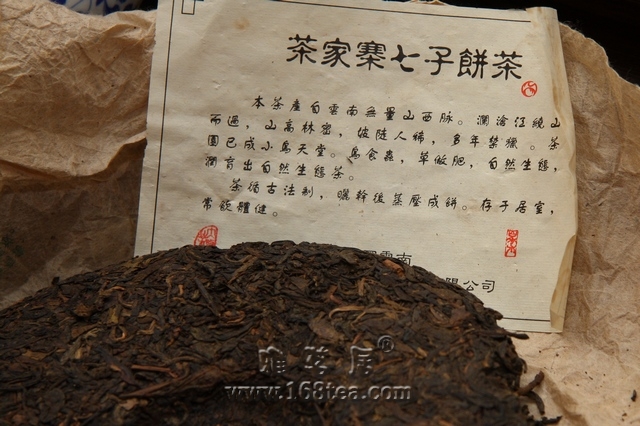 茶家寨七子餅茶
本茶產自雲南無量山西脉。瀾滄江繞山
而過，山高林密，坡陡人稀，多年禁獵。茶
園已成小鳥天堂。鳥食蟲，草做肥，自然生態，
潤育出自然生態茶。
茶循古法制，曬幹後蒸壓成餅。存于居室，
常飲體健。
雲南
限公司
雅茗居®
www.168tea.com